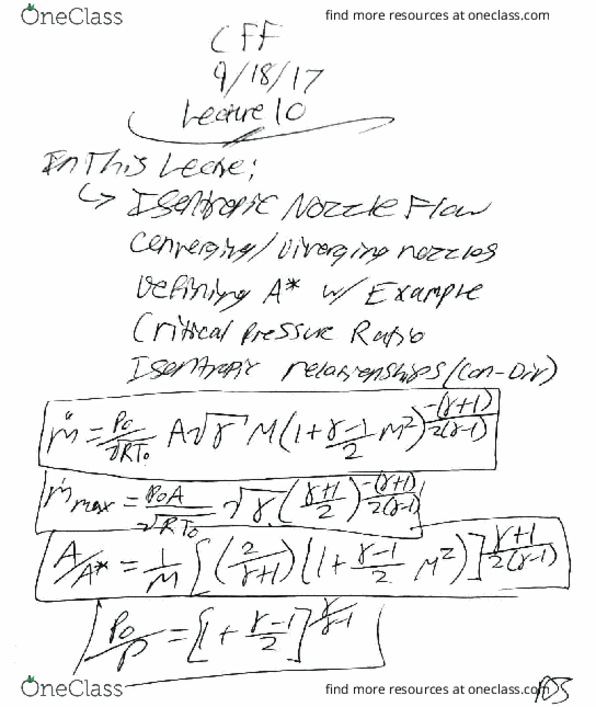 OneClass find more resources at oneclass.com
CFF
9/18/17
Lecture 10
In This Lecure;
↳ Isentropic Nozzle Flow
Converging/Diverging nozzles
Defining A* w/ Example
Critical Pressure Ratio
Isentropic relationships (Con-Div)
ṁ = P₀/√RT₀ A√γ M(1+γ-1/2 M²)^-(γ+1)/2(γ-1)
ṁmax = P₀A/√RT₀ √γ (γ+1/2)^-(γ+1)/2(γ-1)
A/A* = 1/M [(2/γ+1)(1+γ-1/2 M²)]^γ+1/2(γ-1)
P₀/P = [1+γ-1/2]^γ/γ-1
OneClass find more resources at oneclass.com